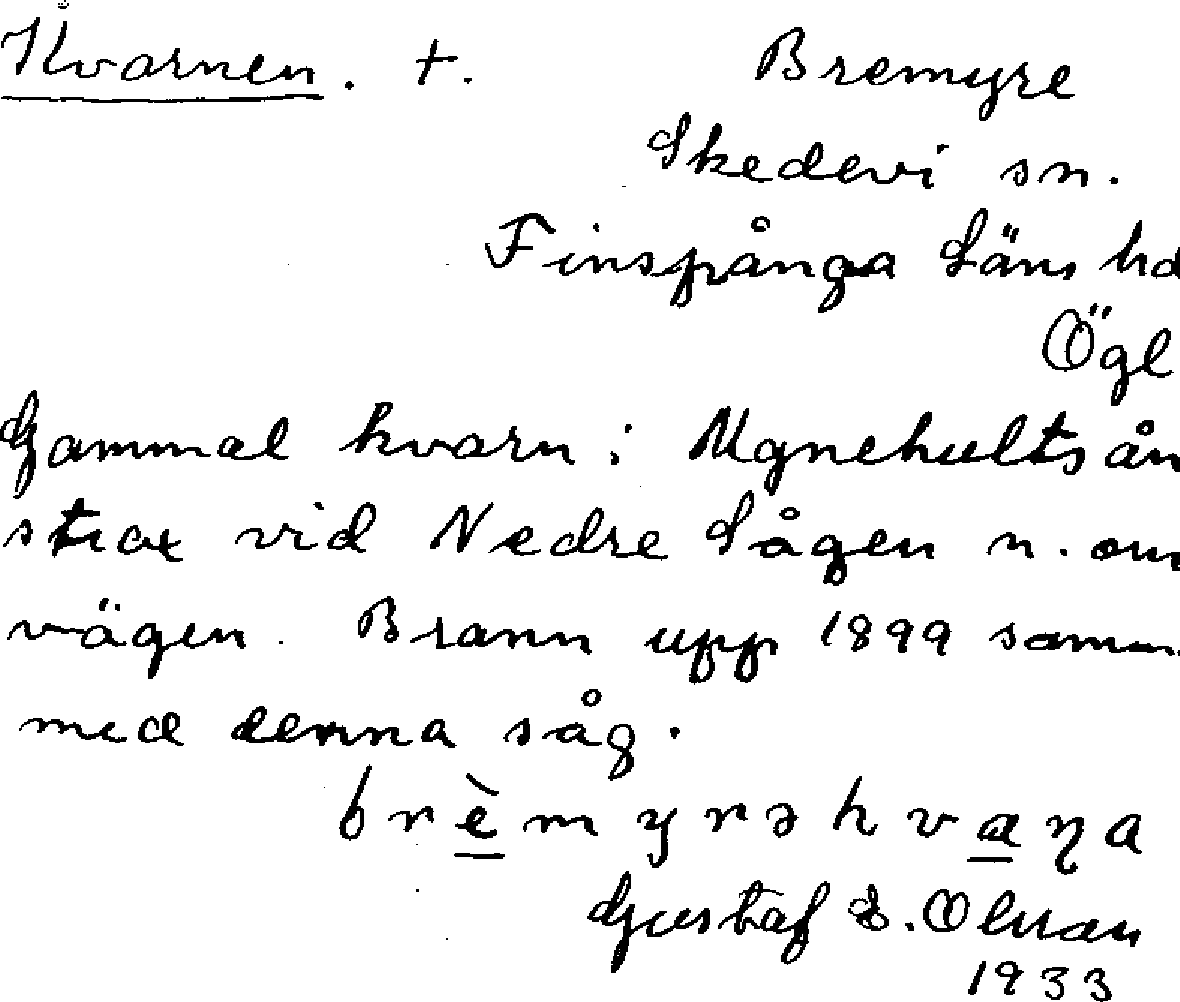 Kvarnen. +. Bremyre
Skedevi sn.
Finspånga Läns hd
Ögl
Gammal kvarn i Ugnehultsån
strax vid Nedre Sågen n. om
vägen. Brann upp 1899 samm
med denna såg.
brèmyrəkvaɳa
Gustaf E. Olsson
1933